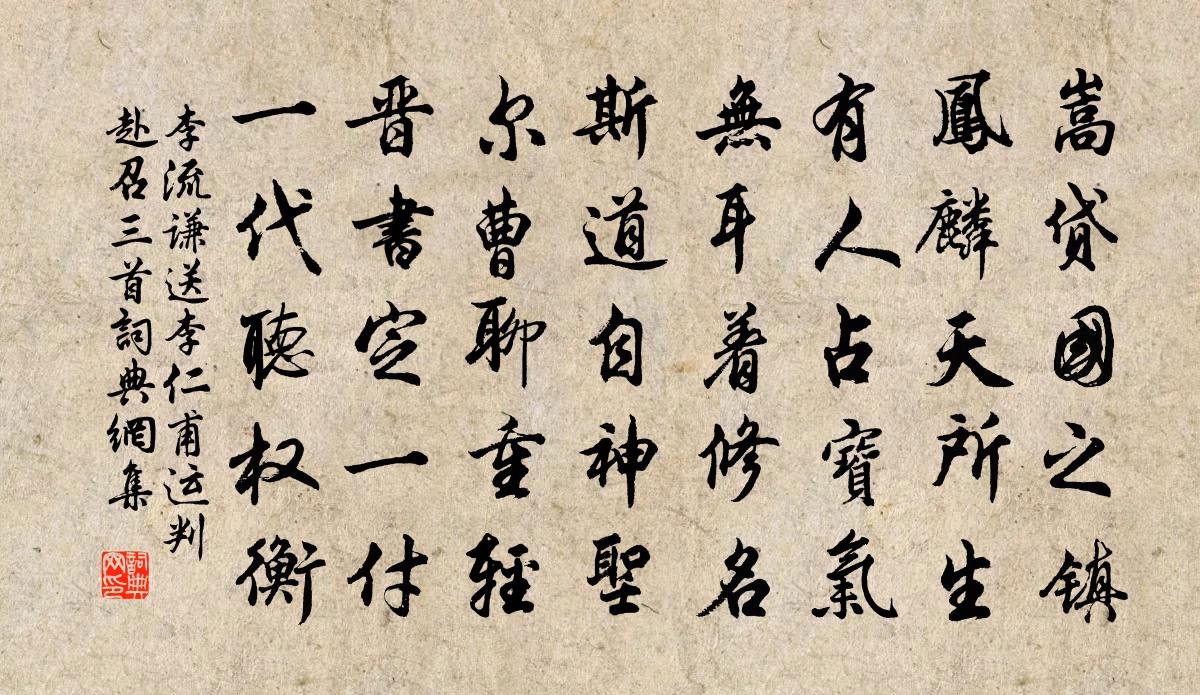 嵩贷國之镇
鳳麟天所生
有人占寶氣
無耳着修名
斯道自神聖
尔曹聊重輕
晋書空一付
一代聽权衡
李流谦送李仁甫运判
赴召三首詞典網集
詞典
网印